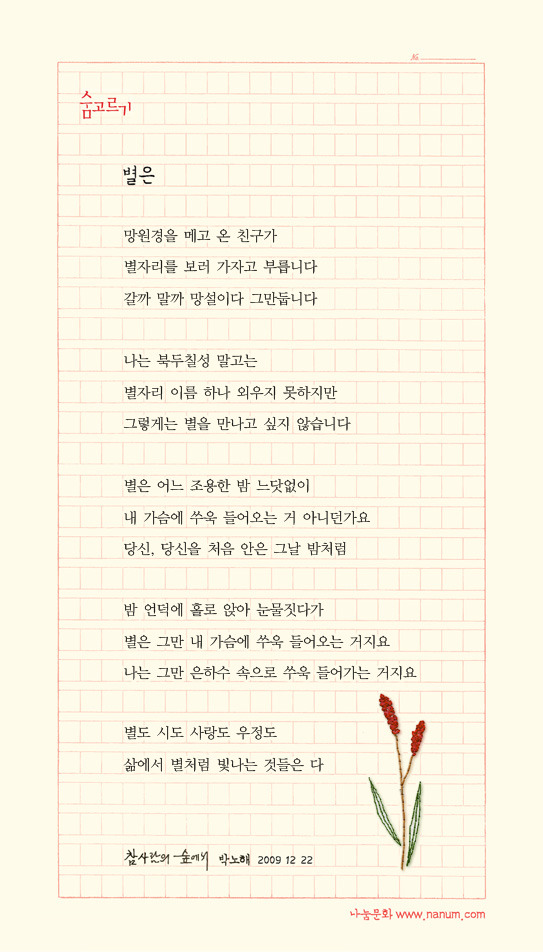 №
숨고르기
별은
망원경을 메고 온 친구가
별자리를 보러 가자고 부릅니다
갈까 말까 망설이다 그만둡니다
나는 북두칠성 말고는
별자리 이름 하나 외우지 못하지만
그렇게는 별을 만나고 싶지 않습니다
별은 어느 조용한 밤 느닷없이
내 가슴에 쑤욱 들어오는 거 아니던가요
당신, 당신을 처음 안은 그날 밤처럼
밤 언덕에 홀로 앉아 눈물짓다가
별은 그만 내 가슴에 쑤욱 들어오는 거지요
나는 그만 은하수 속으로 쑤욱 들어가는 거지요
별도 시도 사랑도 우정도
삶에서 별처럼 빛나는 것들은 다
참사람의 숲에서 박노해 2009 12 22
나눔문화 www.nanum.com